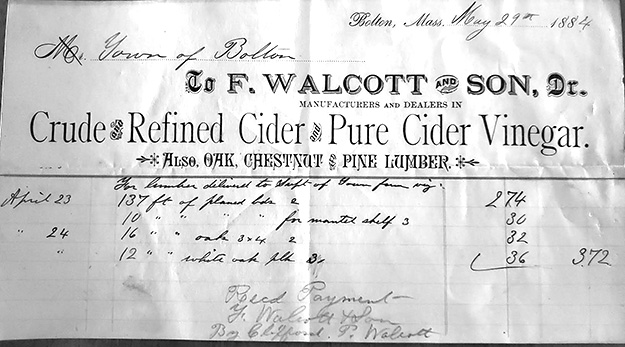 Bolton, Mass. May 29th 1884
Mr. Town of Bolton
To F. WALCOTT AND SON, Dr.
MANUFACTURERS AND DEALERS IN
Crude and Refined Cider and Pure Cider Vinegar.
ALSO, OAK, CHESTNUT & PINE LUMBER.
For lumber delivered to Supt of Town farm viz.
April 23 137 ft of planed bds 2 274
10 " " " " for mantel shelf 3 30
" 24 16 " " oak 3x4 2 32
" 12 " " white oak plk 3 36 3.72
Recd Payment
F. Walcott & Son
By Clifford P. Walcott